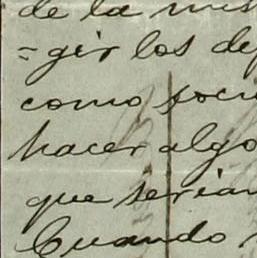 de la mis
=gir los de
como soci
hacer algo
que serian
Cuando